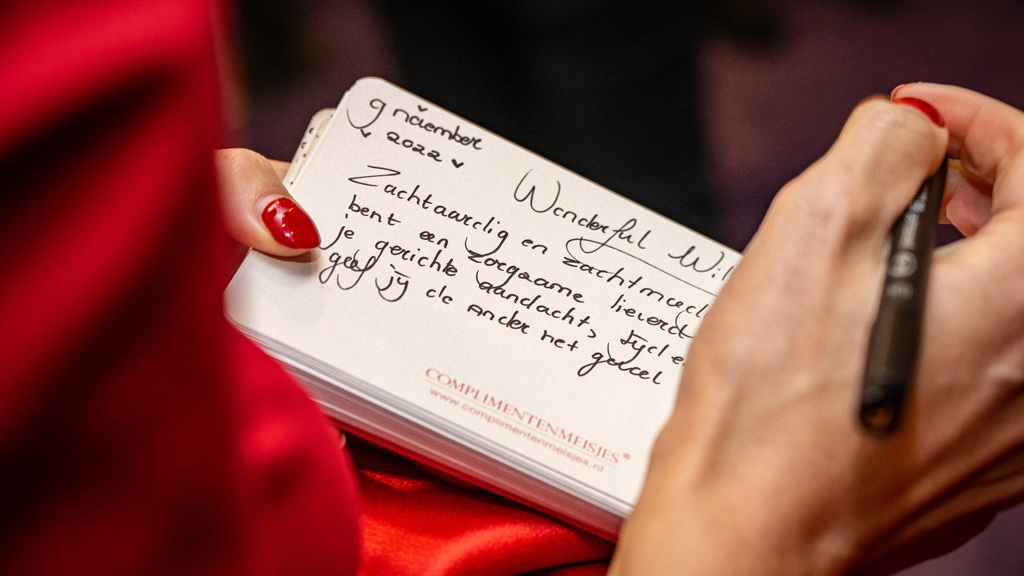 9 november
2022
Wonderful Wil
Zachtaardig en zachtmoed
bent een zorgzame lieverd
je gerichte aandacht, tijd e
geef jij de ander het gevoel
COMPLIMENTENMEISJES®
www.complimentenmeisjes.nl